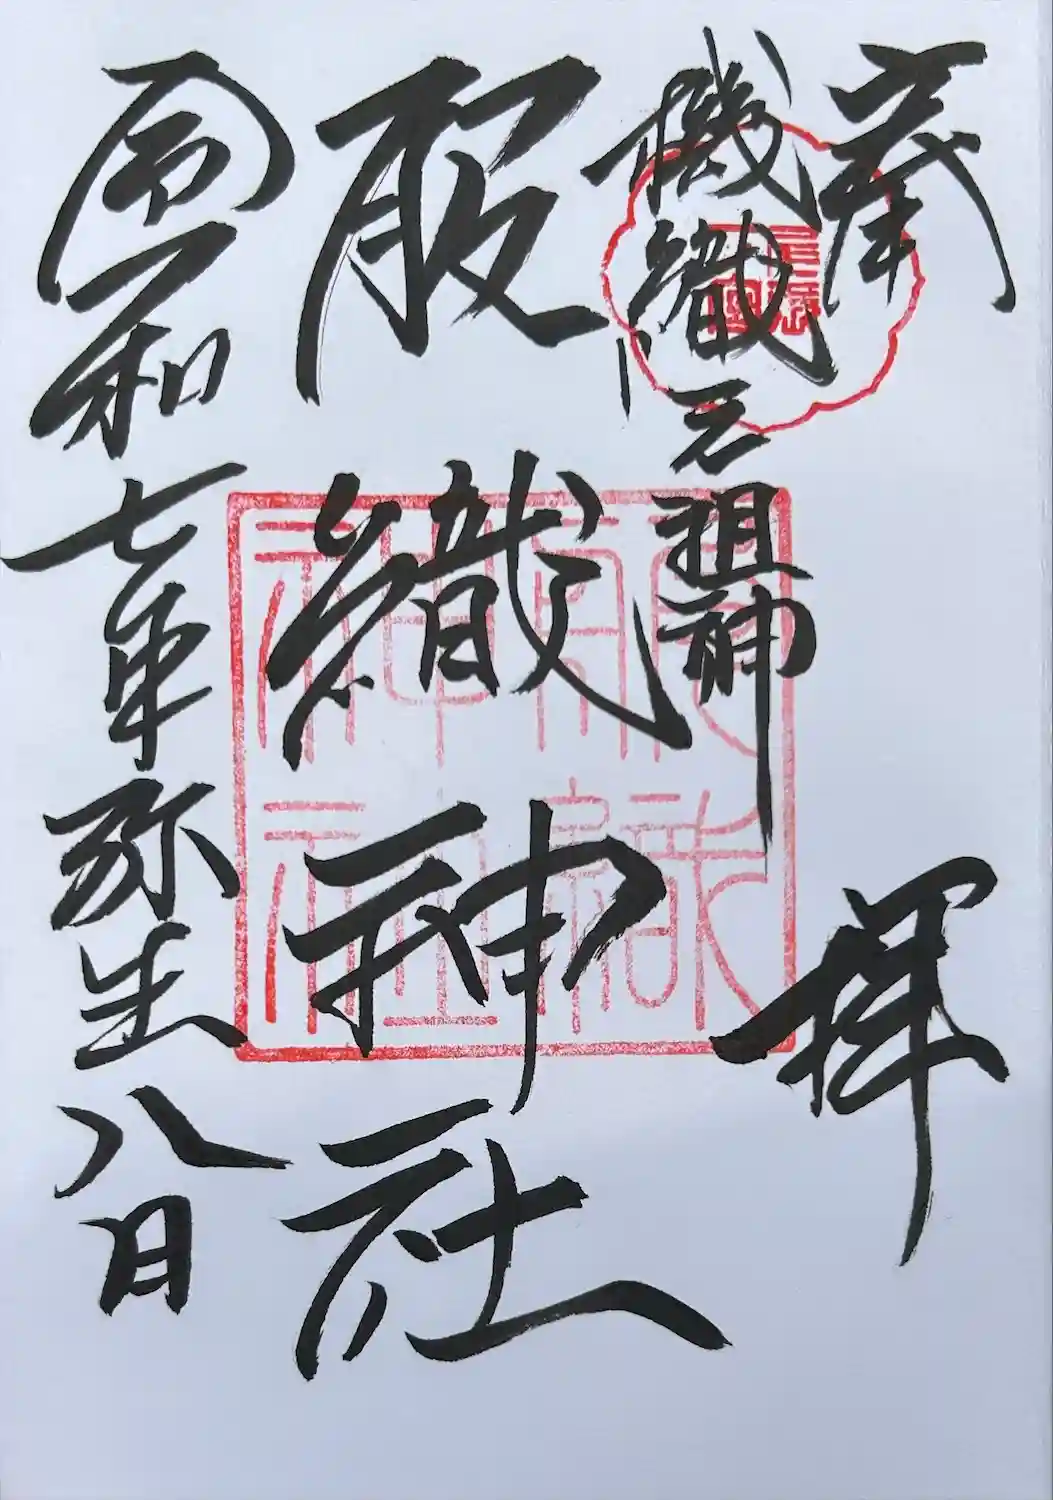 奉拝
機織元祖神
服織神社
令和七年弥生八日
服織
神社